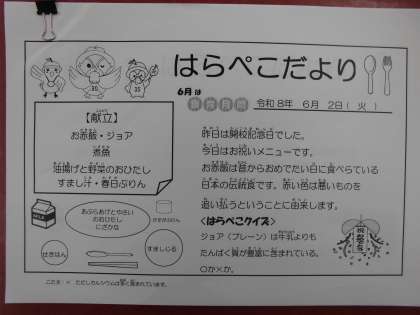 はらぺこだより
6月は
食育月間
令和8年 6月 2日(火)
【献立】
お赤飯・ジョア
煮魚
油揚げと野菜のおひたし
すまし汁・春日ぷりん
昨日は開校記念日でした。
今日はお祝いメニューです。
お赤飯は昔からおめでたい日に食べられている
日本の伝統食です。赤い色は悪いものを
追い払うということに由来します。
<はらぺこクイズ>
ジョア(プレーン)は牛乳よりも
たんぱく質が豊富に含まれている。
○か×か。
あぶらあげとやさい
のおひたし
にざかな
かすがぷりん
せきはん
すましじる
こたえ:× ただしカルシウムは多く含まれています。
祝